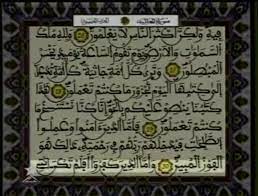 سورة الجاثية
فيه ولكن أكثر الناس لا يعلمون ولله ملك
السموت والارض ويوم تقوم الساعة يومئذ يخسر
المبطلون وترى كل أمة جاثية كل أمة تدعى
إلى كتبها اليوم تجزون ما كنتم تعملون هذا
كتبنا ينطق عليكم بالحق إنا كنا نستنسخ ما
كنتم تعملون فأما الذين ءامنوا وعملوا
الصلحت فيدخلهم ربهم في رحمته ذلك هو
الفوز المبين وأما الذين كفروا أفلم تكن ءايتي